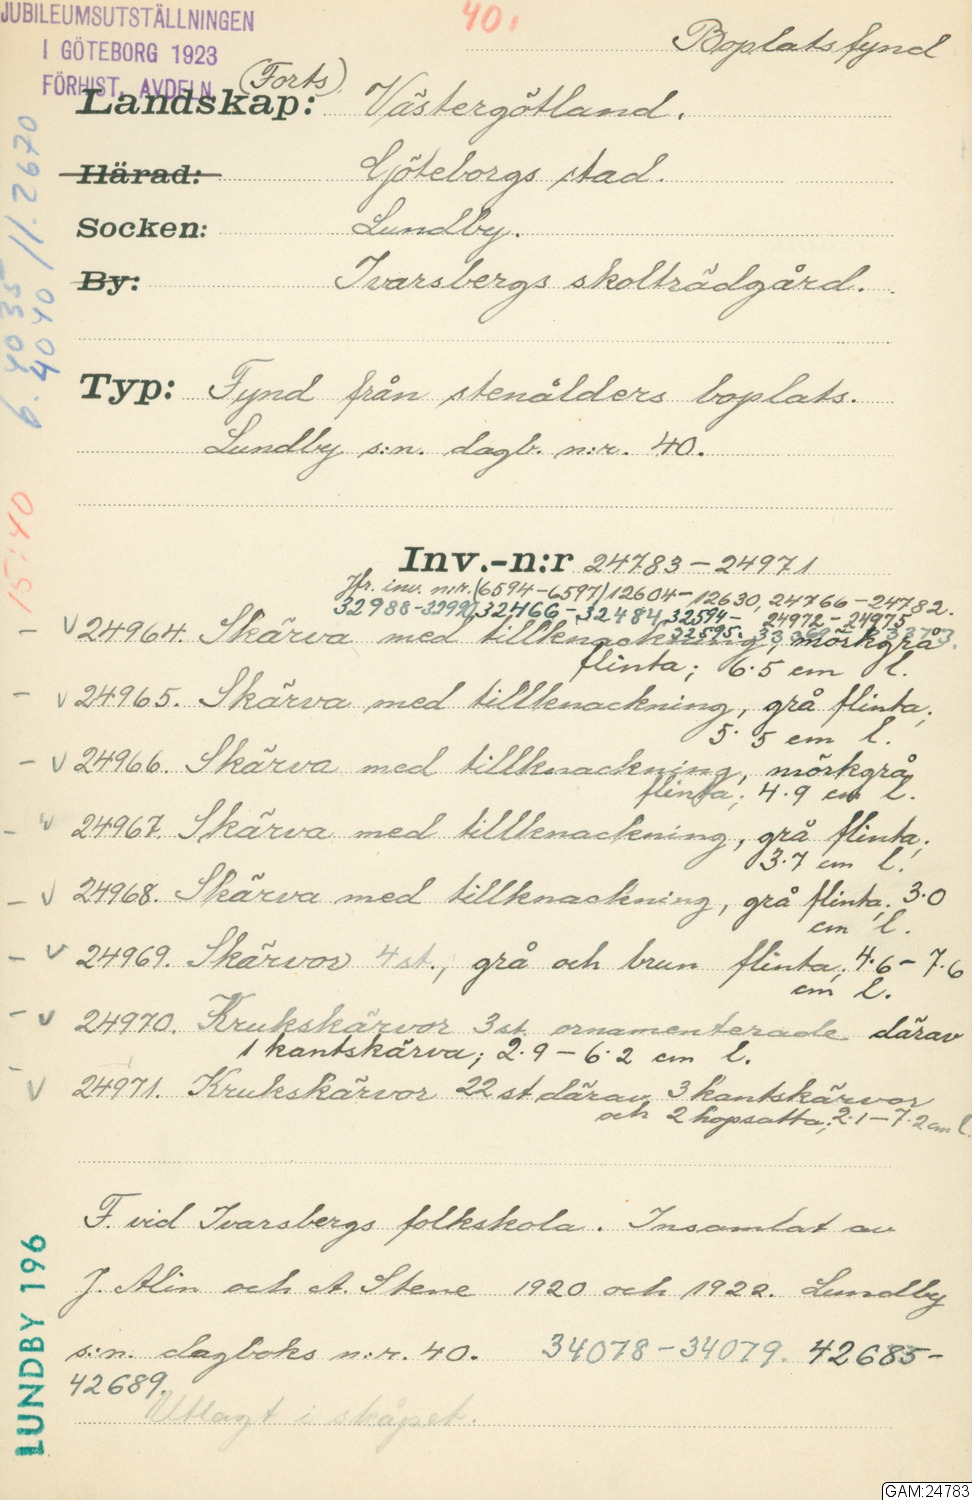 JUBILEUMSUTSTÄLLNINGEN
I GÖTEBORG 1923
FÖRHIST. AVDELN.
40.
Boplatsfynd
(Forts)
Landskap: Västergötland.
Härad: Göteborgs stad.
Socken: Lundby.
By: Ivarsbergs skolträdgård.
Typ: Fynd från stenålders boplats.
Lundby s:n. dagb. n:r. 40.
Inv.-n:r 24783-24971
Jfr. inv. n:r. (6594-6597) 12604-12630, 24766-24782.
32988-32992, 32466-32484, 32594-32595. 24972-24975
24964. Skärva med tillknackning, mörkgrå
flinta; 6.5 cm l.
24965. Skärva med tillknackning, grå flinta;
5.5 cm l.
24966. Skärva med tillknackning, mörkgrå
flinta; 4.9 cm l.
24967. Skärva med tillknackning, grå flinta;
3.7 cm l.
24968. Skärva med tillknackning, grå flinta; 3.0
cm l.
24969. Skärvor 4 st., grå och brun flinta; 4.6-7.6
cm l.
24970. Krukskärvor 3 st. ornamenterade därav
1 kantskärva; 2.9-6.2 cm l.
24971. Krukskärvor 22 st därav 3 kantskärvor
och 2 hopsatta; 2.1-7.2 cm l.
F. vid Ivarsbergs folkskola. Insamlat av
J. Alin och A. Stene 1920 och 1922. Lundby
s:n. dagboks n:r. 40. 34078-34079. 42685-
42689.
Utlagt i skåpet.
6. 4035
4040 / 1.2670
15:40
LUNDBY 196
GAM:24783